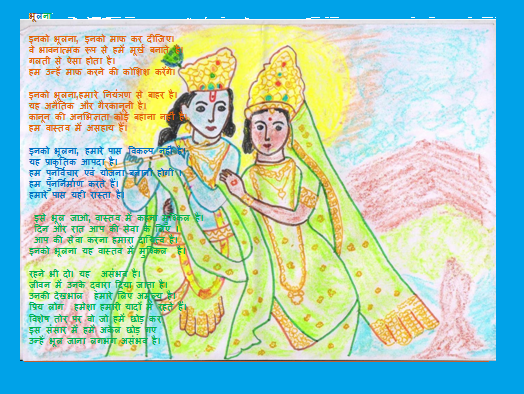 भूलना
इनको भूलना, इनको माफ कर दीजिए।
वे भावनात्मक रूप से हमें मूर्ख बनाते है
गलती से ऐसा होता है।
हम उन्हें माफ करने की कोशिश करेंगे।
इनको भूलना,हमारे नियंत्रण से बाहर है।
यह अनैतिक और गैरकानूनी है।
कानून की अनभिज्ञता कोई बहाना नहीं है
हम वास्तव में असहाय हैं।
इनको भूलना, हमारे पास विकल्प नहीं है।
यह प्राकृतिक आपदा है।
हम पुनर्विचार एवं योजना बनाना होगा।
हम पुनर्निर्माण करते हैं।
हमारे पास यही रास्ता है।
इसे भूल जाओ, वास्तव में कहना मुश्किल है।
दिन और रात आप की सेवा के लिए
आप की सेवा करना हमारा दायित्व है।
इनको भूलना यह वास्तव में मुश्किल है।
रहने भी दो। यह असंभव है।
जीवन में उनके दवारा दिया जाता है।
उनकी देखभाल हमारे लिए अमूल्य है।
प्रिय लोग हमेशा हमारी यादों में रहते हैं।
विशेष तौर पर वो जो हमें छोड़ कर
इस संसार में हमें अकेले छोड़ गए
उन्हें भूल जाना लगभग असंभव है।